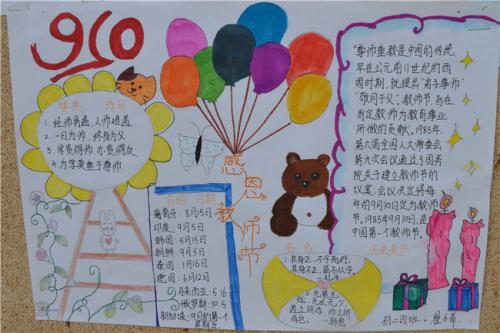 910
赞美 诗句
1. 经师易遇,人师难遇
2. 一日为师,终身为父
3. 学贵得师,亦贵得友
4. 为学莫重于尊师
感恩教师节
各国 日期
葡萄牙:8月15日
印度:9月5日
韩国:5月15日
朝鲜:9月5日
泰国:1月16日
德国:6月12日
马来西亚:5.16
俄罗斯:10.5
新加坡:9月的第1个
星期五
名言
1. 其身正,不令而行;
其身不正,虽不从学。
2.
在也,无长无少,
道之所存,师之所
存也。
“尊师重教是中国的传统,
早在公元前11世纪的西
周时期,就提出“弟子事师”
“敬同于父”,教师节,旨在
肯定教师为教育事业
所做的贡献,1985年,
第六届全国人大常委会
第九次会议通过了国务
院关于建立教师节的
议案,会议决定将每
年的9月10日定为教师
节。1985年9月10日,是
中国第一个教师节。
历史来历
初二四班。